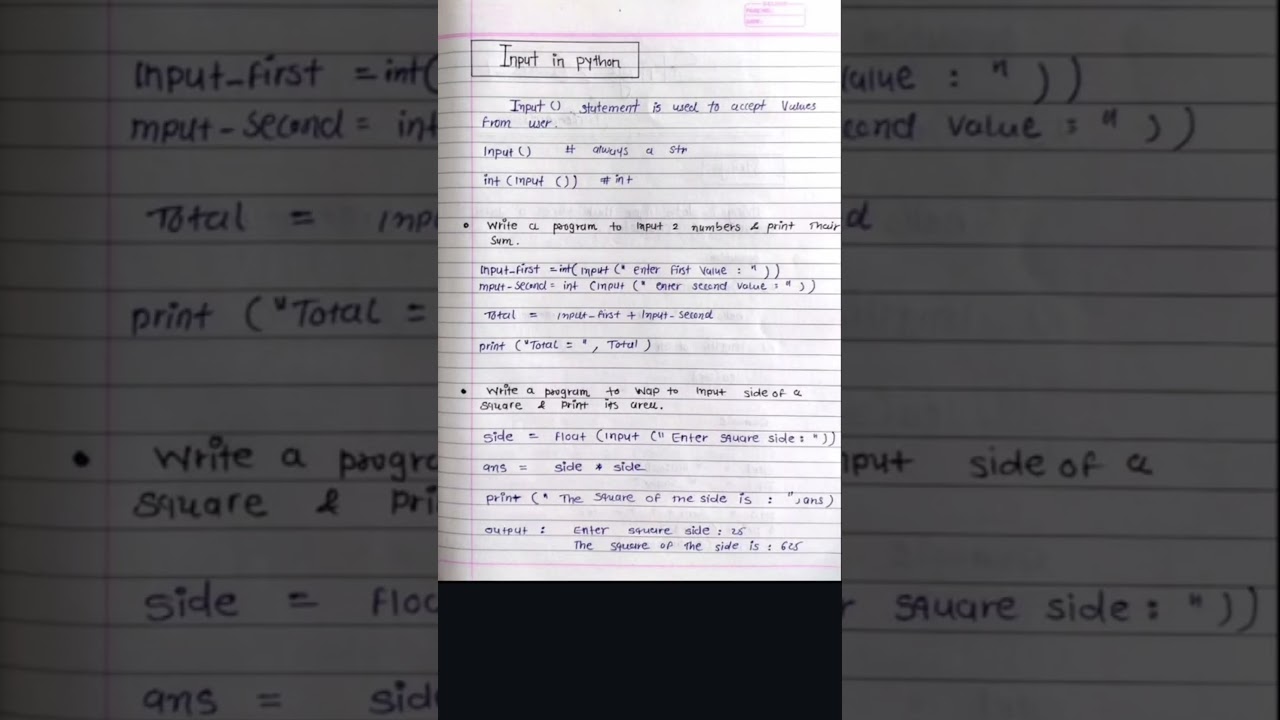 Input in python
Input () statement is used to accept values
from user.
Input () # always a str
int (Input ()) # int
• Write a program to input 2 numbers & print Thair
sum.
Input_first = int( input (" enter first value : " ))
mput-second = int (input (" enter second value : " ))
Total = input-first + Input-second
print ("Total = " , Total )
• Write a program to WAP to input side of a
square & print its area.
side = float (input (" Enter square side : "))
ans = side * side
print (" The square of the side is : ", ans)
output : Enter square side : 25
The square of the side is : 625